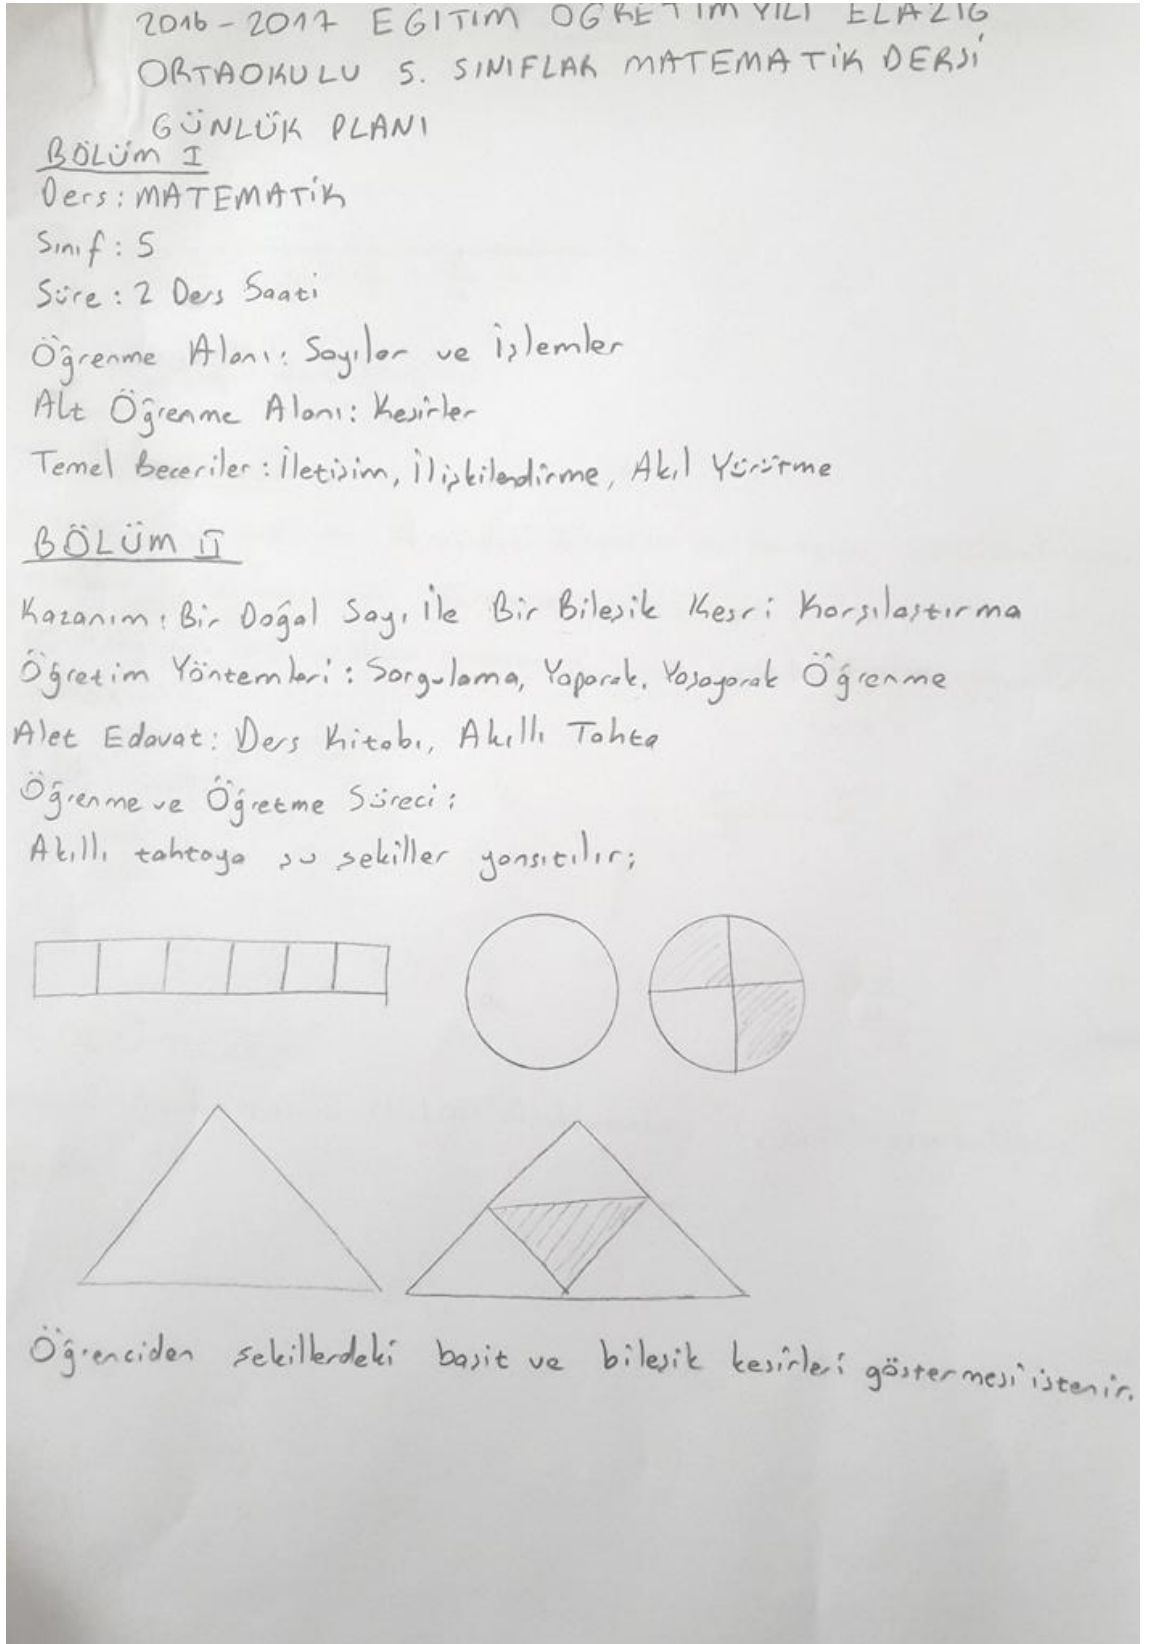 2016-2017 EĞİTİM ÖĞRETİM YILI ELAZIĞ
ORTAOKULU 5. SINIFLAR MATEMATİK DERSİ
GÜNLÜK PLANI
BÖLÜM I
Ders: MATEMATİK
Sınıf: 5
Süre: 2 Ders Saati
Öğrenme Alanı: Sayılar ve İşlemler
Alt Öğrenme Alanı: Kesirler
Temel Beceriler: İletişim, İlişkilendirme, Akıl Yürütme
BÖLÜM II
Kazanım: Bir Doğal Sayı İle Bir Bileşik Kesri Karşılaştırma
Öğretim Yöntemleri: Sorgulama, Yaparak, Yaşayarak Öğrenme
Alet Edavat: Ders Kitabı, Akıllı Tahta
Öğrenme ve Öğretme Süreci:
Akıllı tahtaya şu şekiller yansıtılır;
Öğrenciden şekillerdeki basit ve bileşik kesirleri göstermesi istenir.